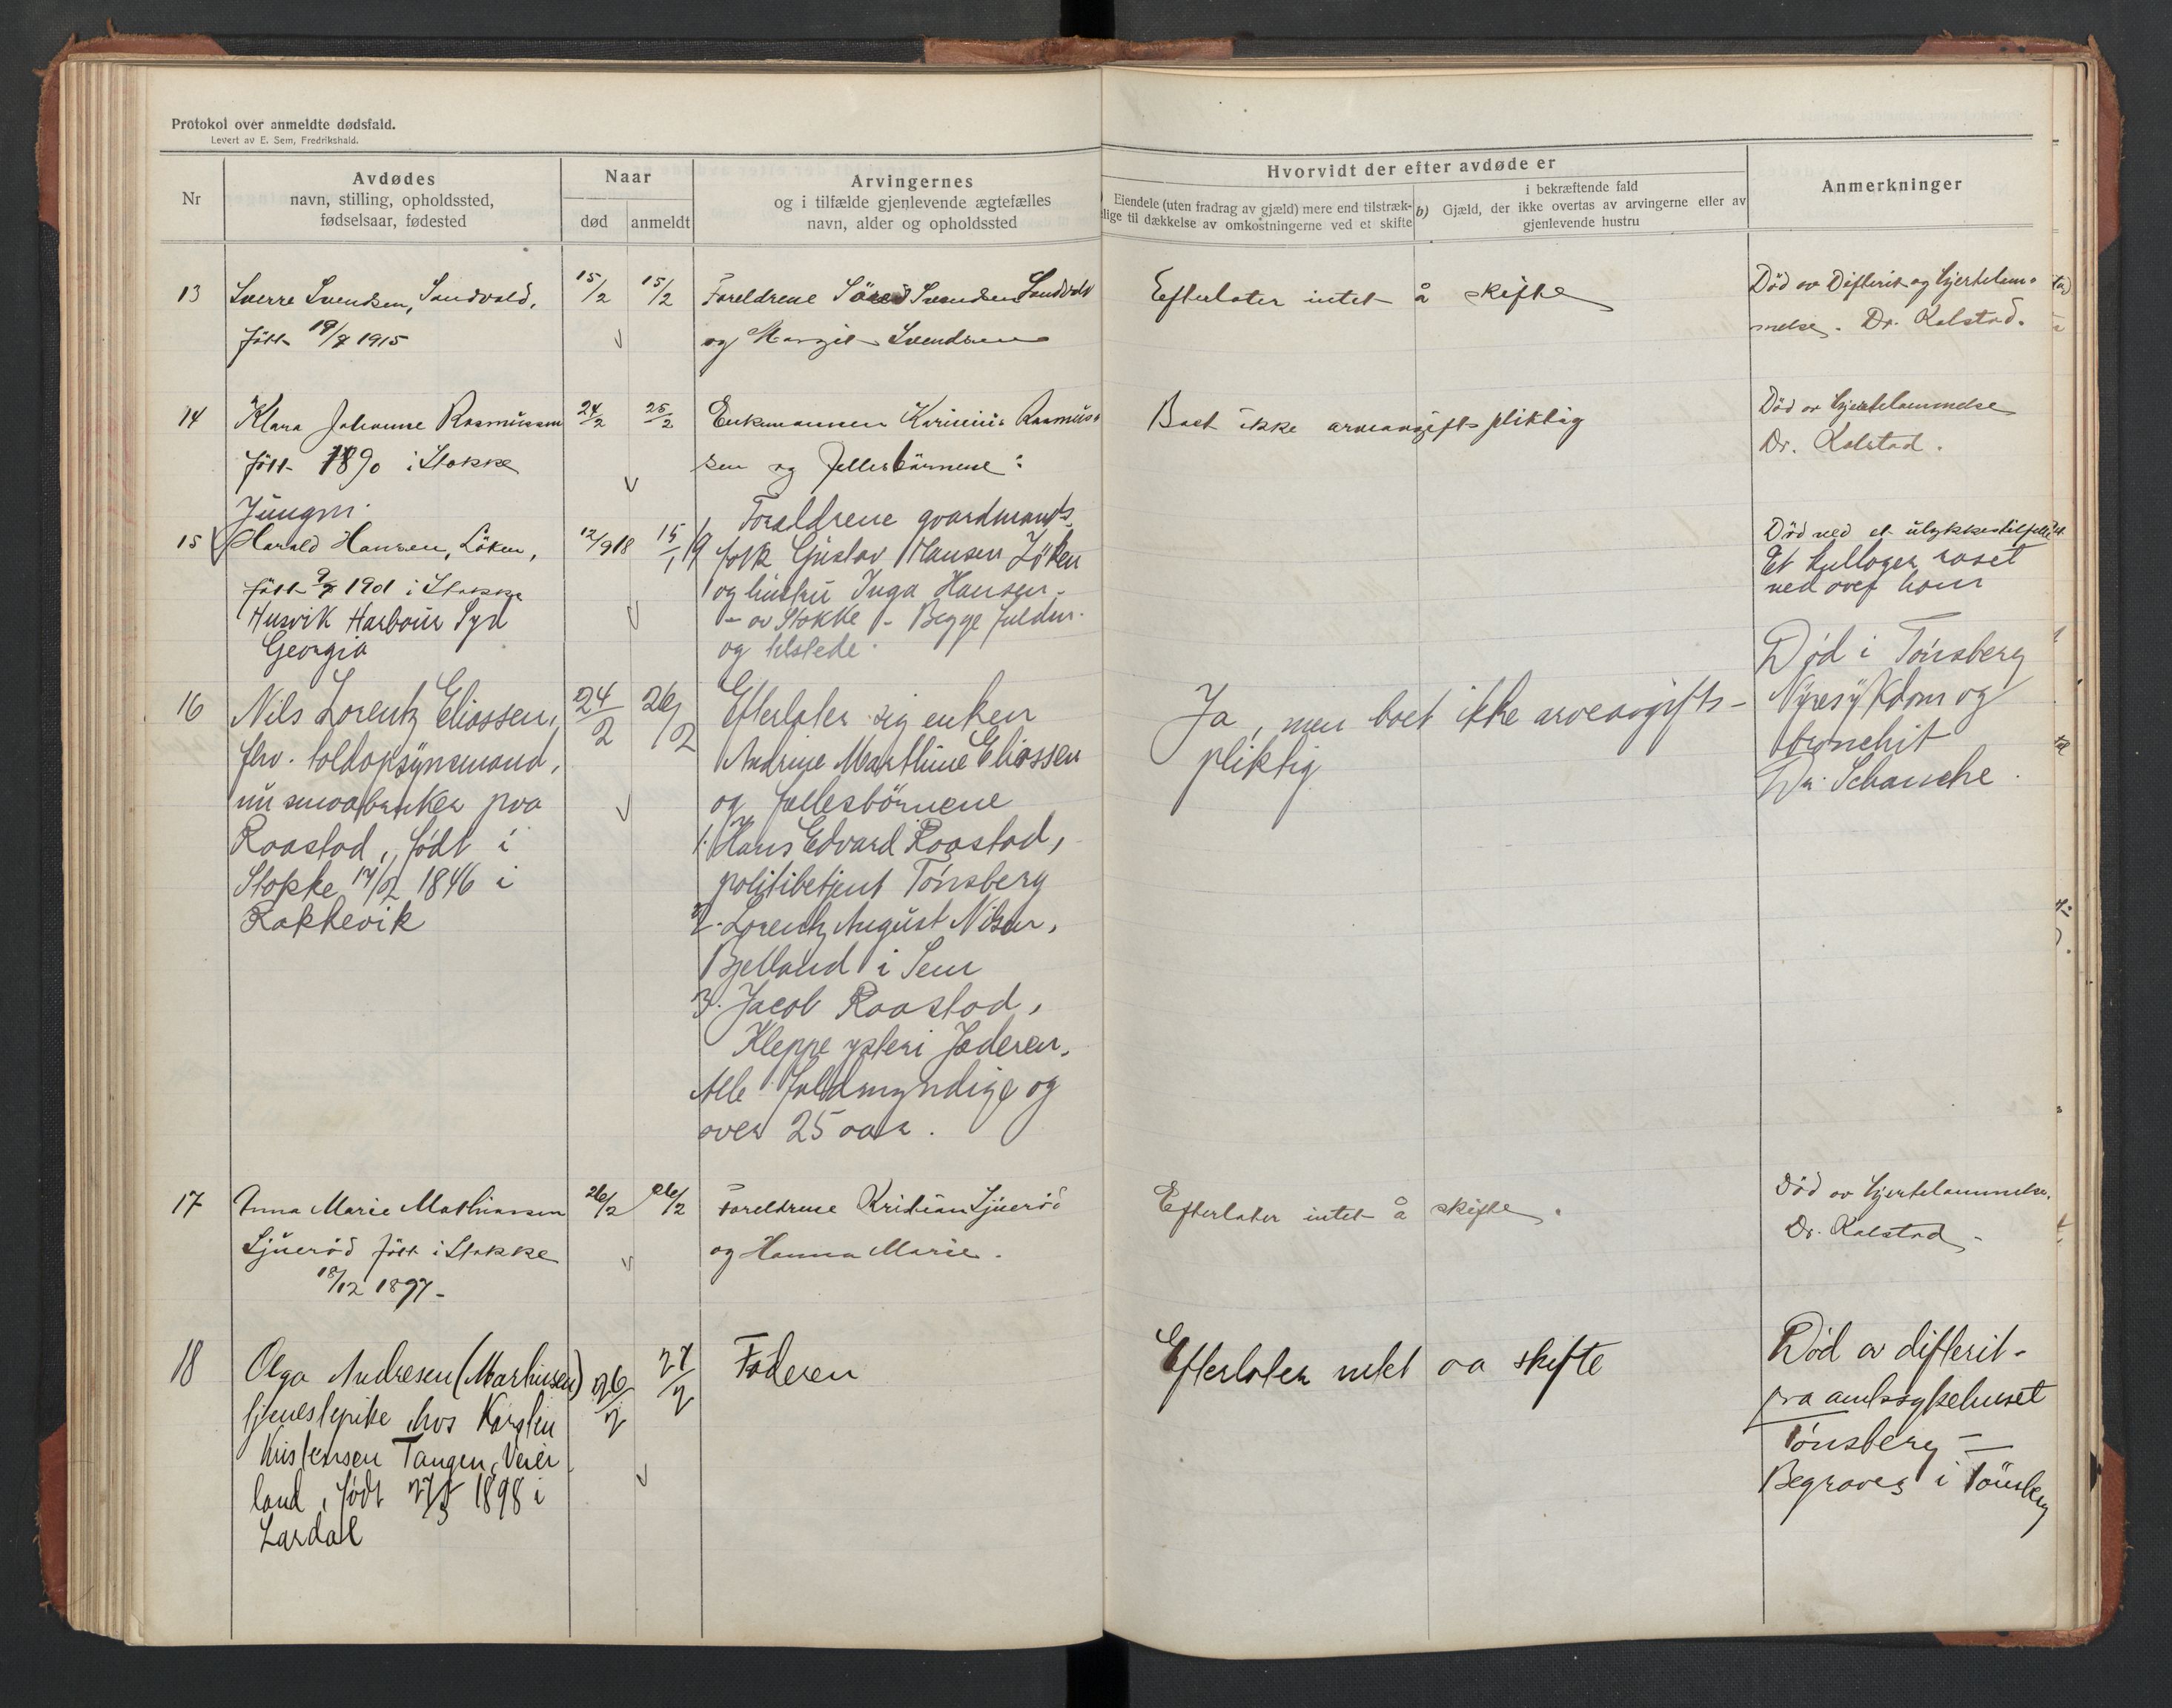 Protokol over anmeldte dødsfald.
Levert av E. Sem, Fredrikshald.
Nr
Avdødes
navn, stilling, opholdssted,
fødselsaar, fødested
Naar
død
anmeldt
Arvingernes
og i tilfælde gjenlevende ægtefælles
navn, alder og opholdssted
Hvorvidt der efter avdøde er
Eiendele (uten fradrag av gjæld) mere end tilstræk-
lige til dækkelse av omkostningerne ved et skifte
i bekræftende fald
b) Gjæld, der ikke overtas av arvingerne eller av
gjenlevende hustru
Anmerkninger
13
Sverre Svendsen, Sandvold,
født 19/7 1915
15/2
15/2
Foreldrene Svendsen Sandvold
og Margit Svendsen
Efterlater intet å skifte
Död av Difterit og Hjertelam-
melse. Dr. Kalstad.
14
Klara Johanne Rasmussen
født 1890 i Stokke
24/2
25/2
Enkemannen Rasmus-
sen og fellesbörnene:
Boet ikke arveavgiftspliktig
Död av Hjertelammelse
Dr. Kalstad.
15
Jungm.
Harald Hansen, Löken,
født 9/7 1901 i Stokke
Husvik Harbour Syd
Georgia
12/9 18
15/1 19
Foraldrene gaardmands-
folk Gustav Hansen Löken
og hustru Inga Hansen
- av Stokke - Begge fuldm.
og tilstede.
Död ved et ulykkestilfelle
Et kullager raset
ned over ham
16
Nils Lorentz Eliassen,
fhv. toldopsynsmand,
nu smaabruker paa
Raastad, født i
Stokke 14/2 1846 i
Rakkevik
24/2
26/2
Efterlater sig enken
Andrine Marthine Eliassen
og fællesbörnene
1. Hans Edvard Raastad,
politibetjent Tönsberg
2. Lorentz August Nilsen,
Bjelland i Sem
3. Jacob Raastad,
Kleppe ysteri Jæderen.
Alle fuldmyndige og
over 25 aar.
Ja, men boet ikke arveavgifts-
pliktig
Død i Tönsberg
Nyresykdom og
bronchit
Dr. Schanche.
17
Anna Marie Mathiassen
Ljuerød født i Stokke
18/12 1897-
26/2
26/2
Foreldrene Kristian Ljuerød
og Hanna Marie.
Efterlater intet å skifte.
Död av Hjertelammelse.
Dr. Kalstad.
18
Olga Andresen (Mathisen)
tjenestepike hos Karstin
Kristensen Tangen, Veier
land, født 27/5 1898 i
Lardal
26/2
27/2
Faderen
Efterlater intet aa skifte
Død av difterit-
paa amtssykehuset
Tönsberg -
Begraves i Tönsberg